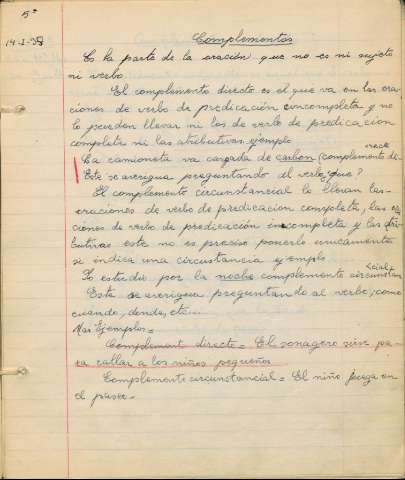 5º
19-I-38
Complementos
Es la parte de la oración que no es ni sujeto
ni verbo.
El complemento directo es el que va en las ora-
ciones de verbo de predicación incompleta y no
lo pueden llevar ni las de verbo de predicacion
completa ni las atributivas ejemplo
La camioneta va cargada de carbon (complemento di-
recto
Este se averigua preguntando al verbo ¿que?
El complemento circunstancial lo llevan las
oraciones de verbo de predicacion completa, las ora
ciones de verbo de predicación incompleta y las atri
butivas este no es preciso ponerlo unicamente
si indica una circunstancia ejemplo
Yo estudio por la noche complemento circunstan
cial
Este se averigua preguntando al verbo, como
cuando, donde, etc...
Mas Ejemplos =
Complement directo = El sonagero sirve pa-
ra callar a los niños pequeños
Complemento circunstancial = El niño juega en
el paseo.=